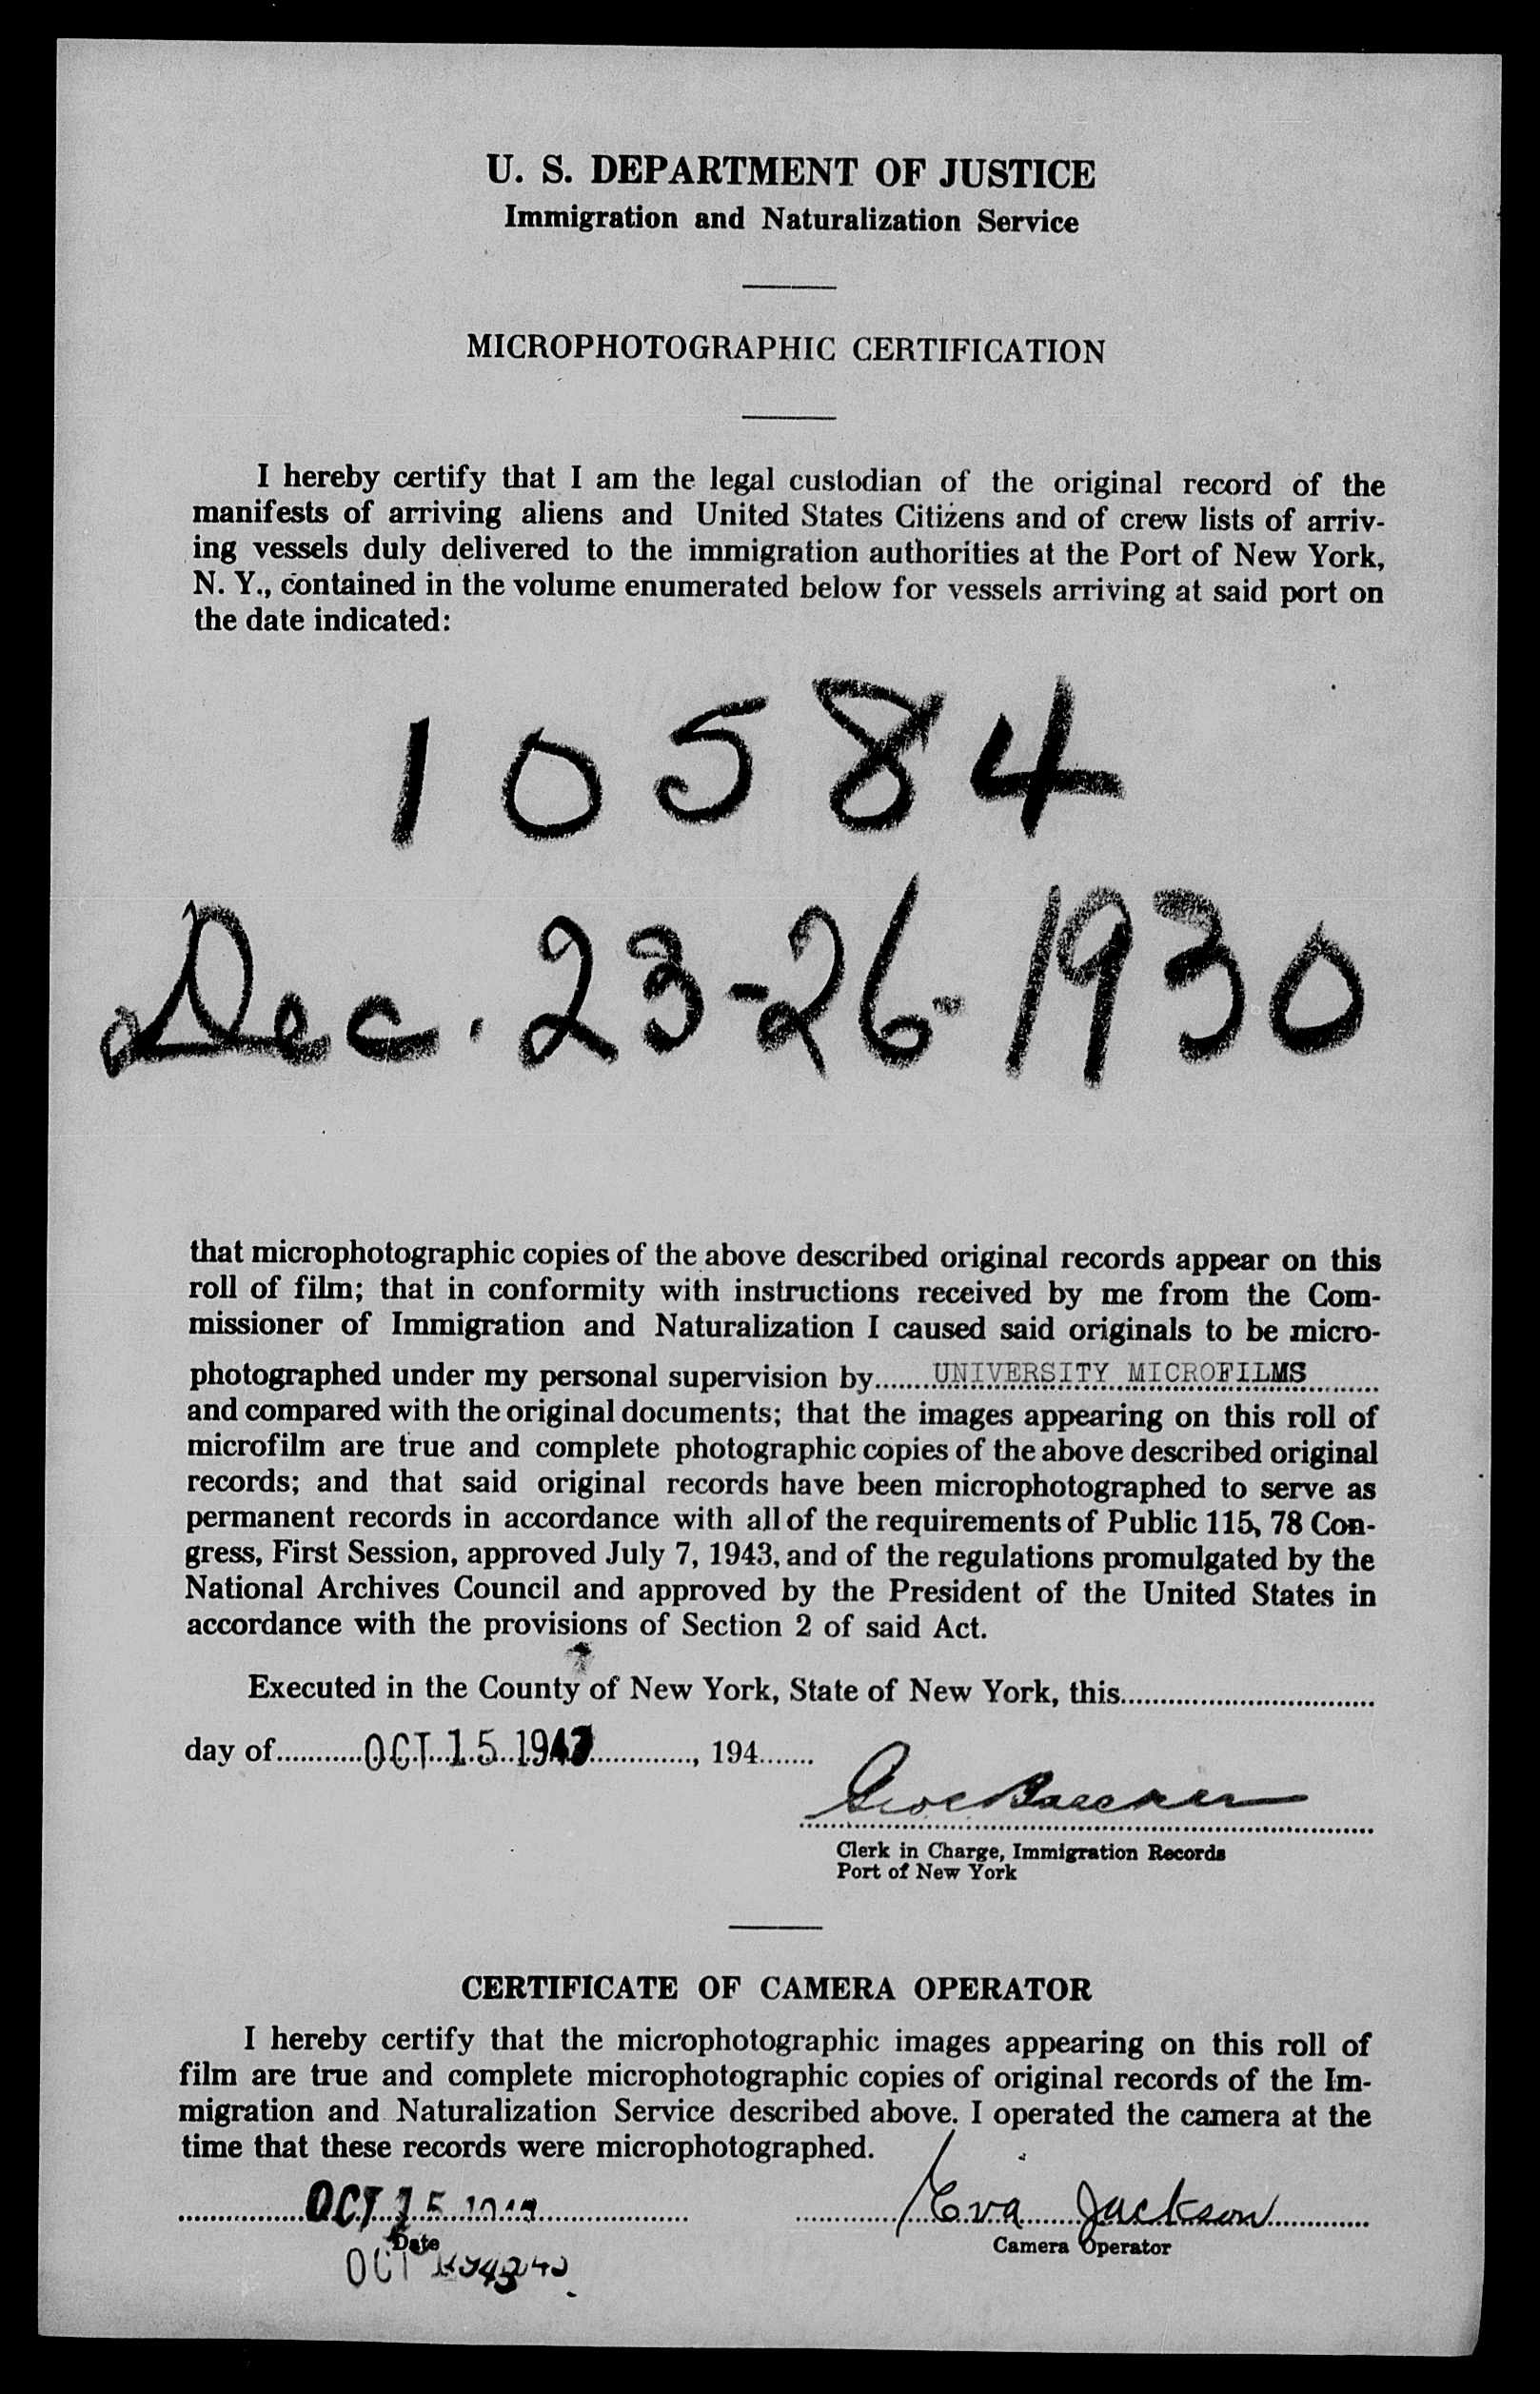 U. S. DEPARTMENT OF JUSTICE
Immigration and Naturalization Service
MICROPHOTOGRAPHIC CERTIFICATION
I hereby certify that I am the legal custodian of the original record of the
manifests of arriving aliens and United States Citizens and of crew lists of arriv-
ing vessels duly delivered to the immigration authorities at the Port of New York,
N. Y., contained in the volume enumerated below for vessels arriving at said port on
the date indicated:
10584
Dec. 23-26-1930
that microphotographic copies of the above described original records appear on this
roll of film; that in conformity with instructions received by me from the Com-
missioner of Immigration and Naturalization I caused said originals to be micro-
photographed under my personal supervision by........UNIVERSITY MICROFILMS..........
and compared with the original documents; that the images appearing on this roll of
microfilm are true and complete photographic copies of the above described original
records; and that said original records have been microphotographed to serve as
permanent records in accordance with all of the requirements of Public 115, 78 Con-
gress, First Session, approved July 7, 1943, and of the regulations promulgated by the
National Archives Council and approved by the President of the United States in
accordance with the provisions of Section 2 of said Act.
Executed in the County of New York, State of New York, this................................
day of...........OCT 15 1943............., 194.......
Clerk in Charge, Immigration Records
Port of New York
CERTIFICATE OF CAMERA OPERATOR
I hereby certify that the microphotographic images appearing on this roll of
film are true and complete microphotographic copies of original records of the Im-
migration and Naturalization Service described above. I operated the camera at the
time that these records were microphotographed.
OCT 15 Eva Jackson
Date Camera Operator
OCT